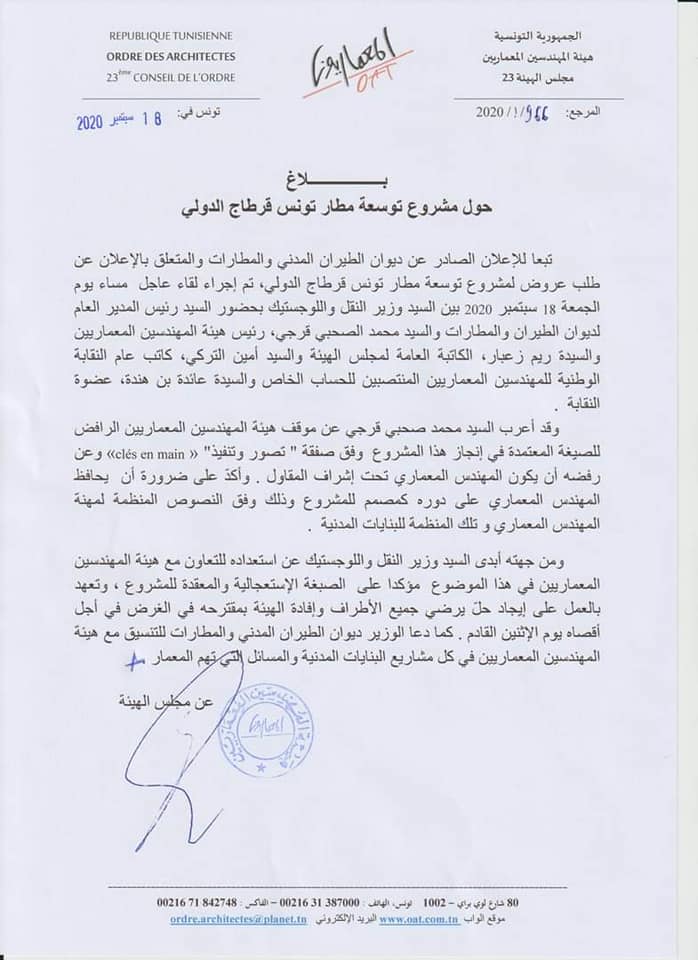 REPUBLIQUE TUNISIENNE
ORDRE DES ARCHITECTES
23ème CONSEIL DE L'ORDRE
المعماريون
OAT
الجمهورية التونسية
هيئة المهندسين المعماريين
مجلس الهيئة 23
تونس في: 18 سبتمبر 2020
المرجع: 966/ /2020
بـــــــلاغ
حول مشروع توسعة مطار تونس قرطاج الدولي
تبعا للإعلان الصادر عن ديوان الطيران المدني والمطارات والمتعلق بالإعلان عن
طلب عروض لمشروع توسعة مطار تونس قرطاج الدولي، تم إجراء لقاء عاجل مساء يوم
الجمعة 18 سبتمبر 2020 بين السيد وزير النقل واللوجستيك بحضور السيد رئيس المدير العام
لديوان الطيران والمطارات والسيد محمد الصحبي قرجي، رئيس هيئة المهندسين المعماريين
والسيدة ريم زعبار، الكاتبة العامة لمجلس الهيئة والسيد أمين التركي، كاتب عام النقابة
الوطنية للمهندسين المعماريين المنتصبين للحساب الخاص والسيدة عائدة بن هندة، عضوة
النقابة .
وقد أعرب السيد محمد صحبي قرجي عن موقف هيئة المهندسين المعماريين الرافض
للصيغة المعتمدة في إنجاز هذا المشروع وفق صفقة " تصور وتنفيذ" « clés en main» وعن
رفضه أن يكون المهندس المعماري تحت إشراف المقاول . وأكدّ على ضرورة أن يحافظ
المهندس المعماري على دوره كمصمم للمشروع وذلك وفق النصوص المنظمة لمهنة
المهندس المعماري و تلك المنظمة للبنايات المدنية .
ومن جهته أبدى السيد وزير النقل واللوجستيك عن استعداده للتعاون مع هيئة المهندسين
المعماريين في هذا الموضوع مؤكدا على الصبغة الإستعجالية والمعقدة للمشروع ، وتعهد
بالعمل على إيجاد حلّ يرضي جميع الأطراف وإفادة الهيئة بمقترحه في الغرض في أجل
أقصاه يوم الإثنين القادم . كما دعا الوزير ديوان الطيران المدني والمطارات للتنسيق مع هيئة
المهندسين المعماريين في كل مشاريع البنايات المدنية والمسائل التي تهم المعمار
عن مجلس الهيئة
80 شارع لوي براي – 1002 تونس، الهاتف : 31387000 00216 – الفاكس : 71 842748 00216
موقع الواب www.oat.com.tn البريد الإلكتروني ordre.architectes@planet.tn